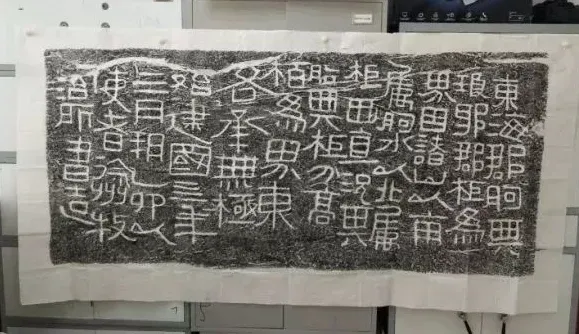 東海郡朐與
琅邪郡柜為
界因諸山以南
屬朐水以北屬
柜西直況其
朐與柜分高
為界東
各承無極
始建國四年
四月朔乙卯以
使者徐州牧
治所書造